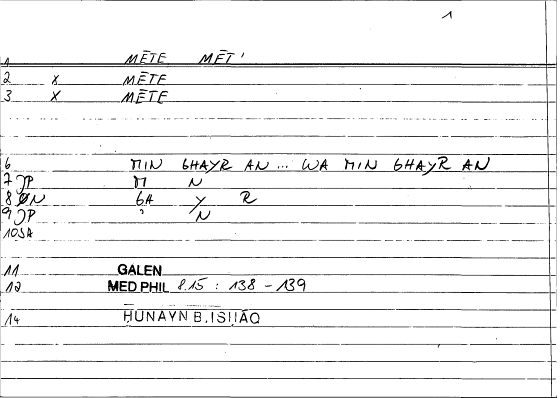 1
1 MĒTE MĒT'
2 x MĒTE
3 x MĒTE
6 MIN GHAYR AN ... WA MIN GHAYR AN
7 JP M N
8 ØN GA Y R
9 JP ' N
10 SA
11 GALEN
12 MED PHIL 8.15 : 138 - 139
14 ḤUNAYN B. ISḤĀQ